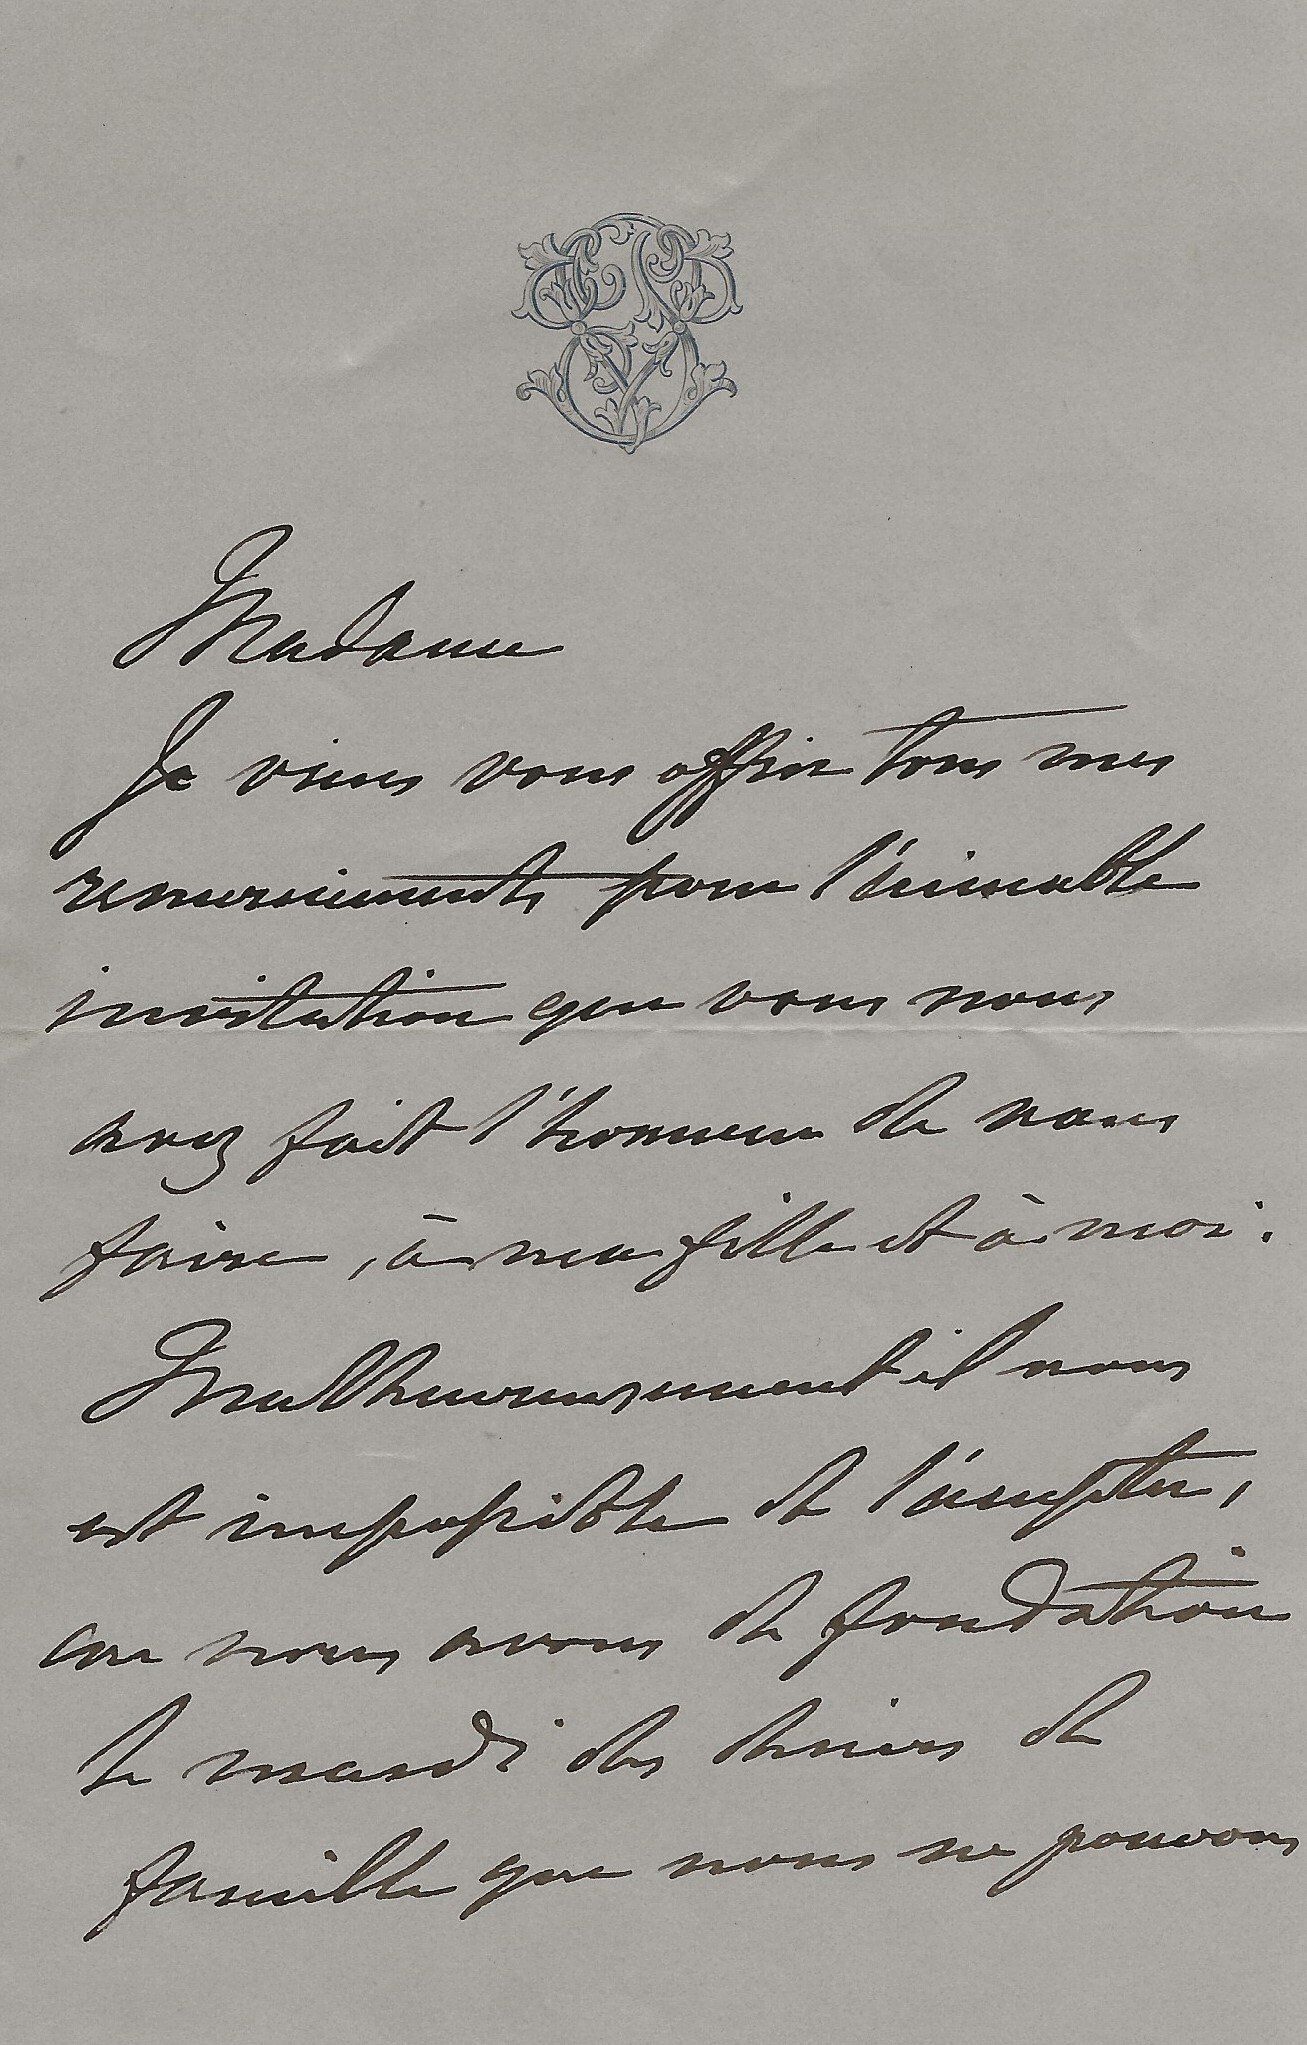 Madame
Je viens vous offrir tous mes
remerciements pour l'aimable
invitation que vous nous
avez fait l'honneur de nous
faire, à ma fille et à moi.
Malheureusement il nous
est impossible de l'accepter,
car nous avons de fondation
le mardi des diners de
famille que nous ne pouvons